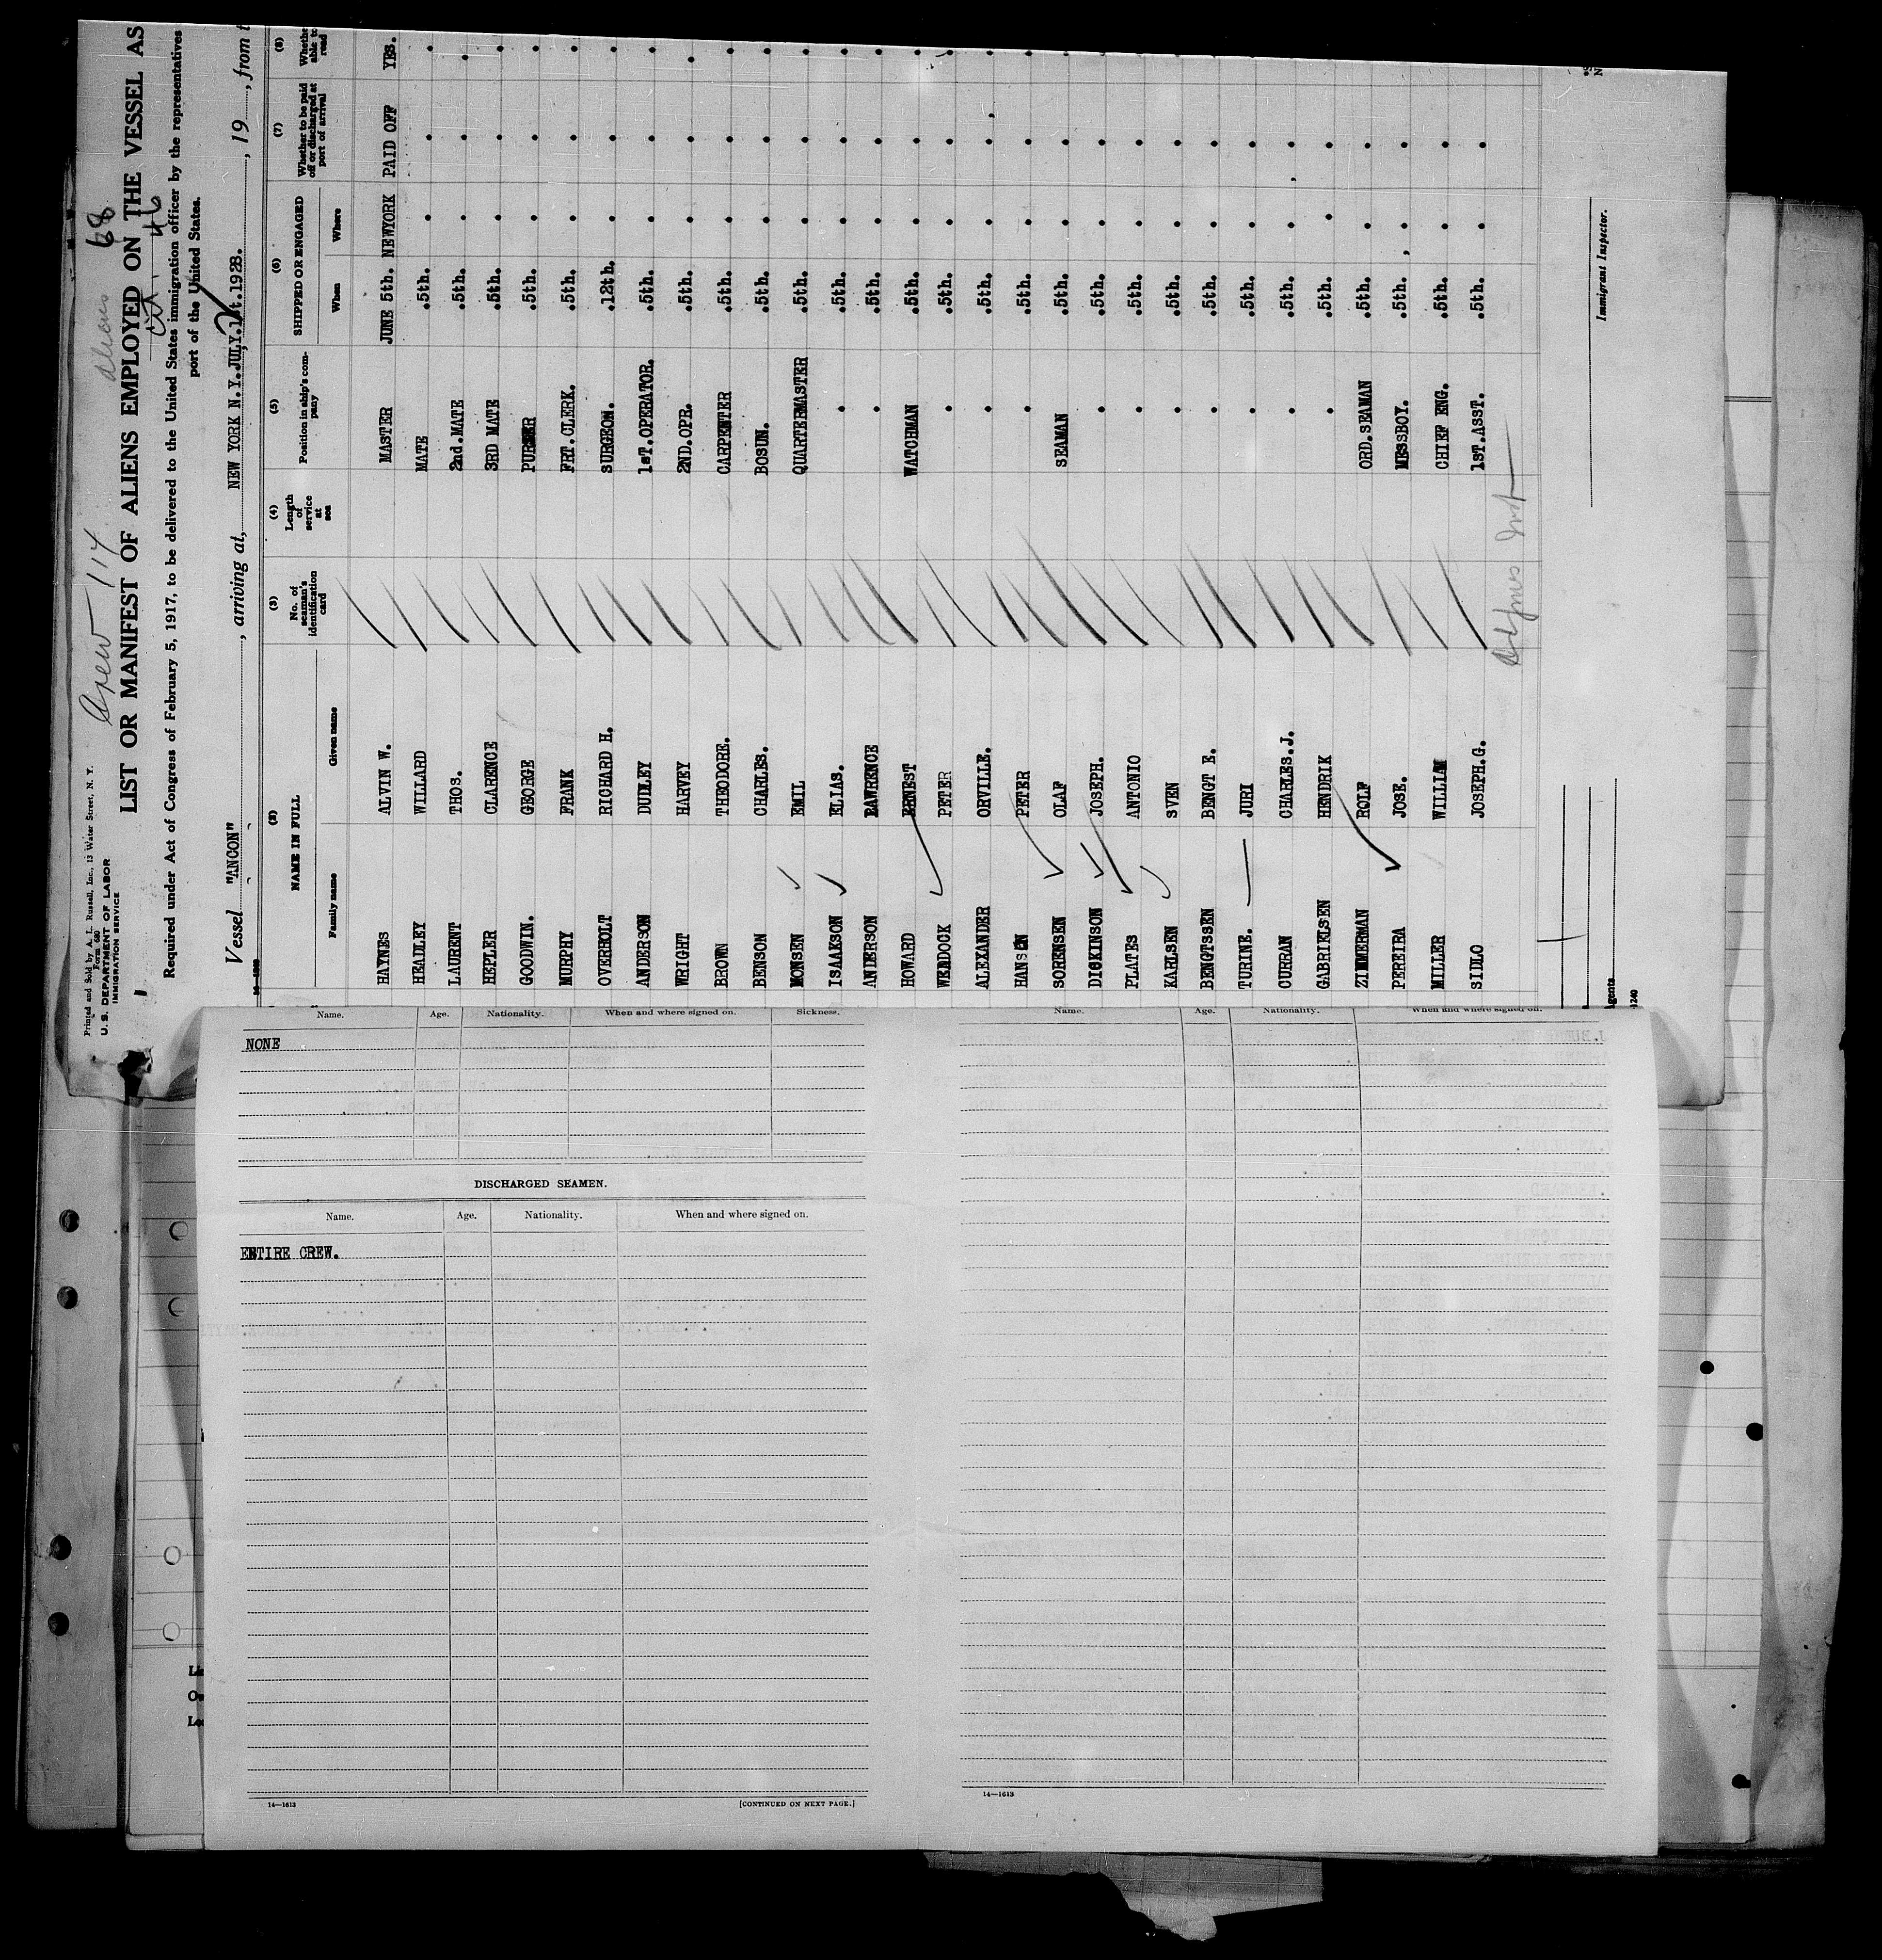 Printed and Sold by A. L. Russell, Inc., 13 Water Street, N. Y.
Form 680
U. S. DEPARTMENT OF LABOR
IMMIGRATION SERVICE
Crew 114
aliens 68
cit. 46
LIST OR MANIFEST OF ALIENS EMPLOYED ON THE VESSEL AS
Required under Act of Congress of February 5, 1917, to be delivered to the United States immigration officer by the representatives
port of the United States.
Vessel "ANCON", arriving at, NEW YORK N.Y. JULY.1st.1928., 19, from
(2) (3) (4) (5) (6) (7) (8)
NAME IN FULL No. of seaman's identification card Length of service at sea Position in ship's company SHIPPED OR ENGAGED Whether to be paid off or discharged at port of arrival able to read
Family name Given name When Where
HAYNES ALVIN W. MASTER JUNE 5th. NEWYORK PAID OFF YES.
HEADLEY WILLARD MATE .5th. . . .
LAURENT THOS. 2nd.MATE .5th. . . .
HEPLER CLARENCE 3RD MATE .5th. . . .
GOODWIN. GEORGE PURSER .5th. . . .
MURPHY FRANK FRT.CLERK. .5th. . . .
OVERHOLT RICHARD H. SURGEON. .12th. . . .
ANDERSON DUDLEY 1sT.OPERATOR. .5th. . . .
WRIGHT HARVEY 2ND.OPR. .5th. . . .
BROWN THEODORE. CARPENTER .5th. . . .
BENSON CHARLES. BOSUN. .5th. . . .
MONSEN EMIL QUARTERMASTER .5th. . . .
ISAAKSON ELIAS. . .5th. . . .
ANDERSON LAWRENCE . .5th. . . .
HOWARD ERNEST WATCHMAN .5th. . . .
WEADOCK PETER . .5th. . . .
ALEXANDER ORVILLE. . .5th. . . .
HANSEN PETER . .5th. . . .
SORENSEN OLAF SEAMAN .5th. . . .
DICKINSON JOSEPH. . .5th. . . .
PLATES ANTONIO . .5th. . . .
KARLSEN SVEN . .5th. . . .
BENGTSSEN BENGT E. . .5th. . . .
TURINE. JURI . .5th. . . .
CURRAN CHARLES.J. . .5th. . . .
GABRIELSEN HENDRIK . .5th. . . .
ZIMMERMAN ROLF ORD.SEAMAN .5th. . . .
PEREIRA JOSE. MESSBOY. .5th. . . .
MILLER WILLIAM CHIEF ENG. .5th. . . .
SIDLO JOSEPH.G. 1ST.ASST. .5th. . . .
Immigrant Inspector.
Agents
1240
Name. Age. Nationality. When and where signed on. Sickness.
NONE
DISCHARGED SEAMEN.
Name. Age. Nationality. When and where signed on.
ENTIRE CREW.
14—1613
[CONTINUED ON NEXT PAGE.]
Name. Age. Nationality. When and where signed on.
14—1613